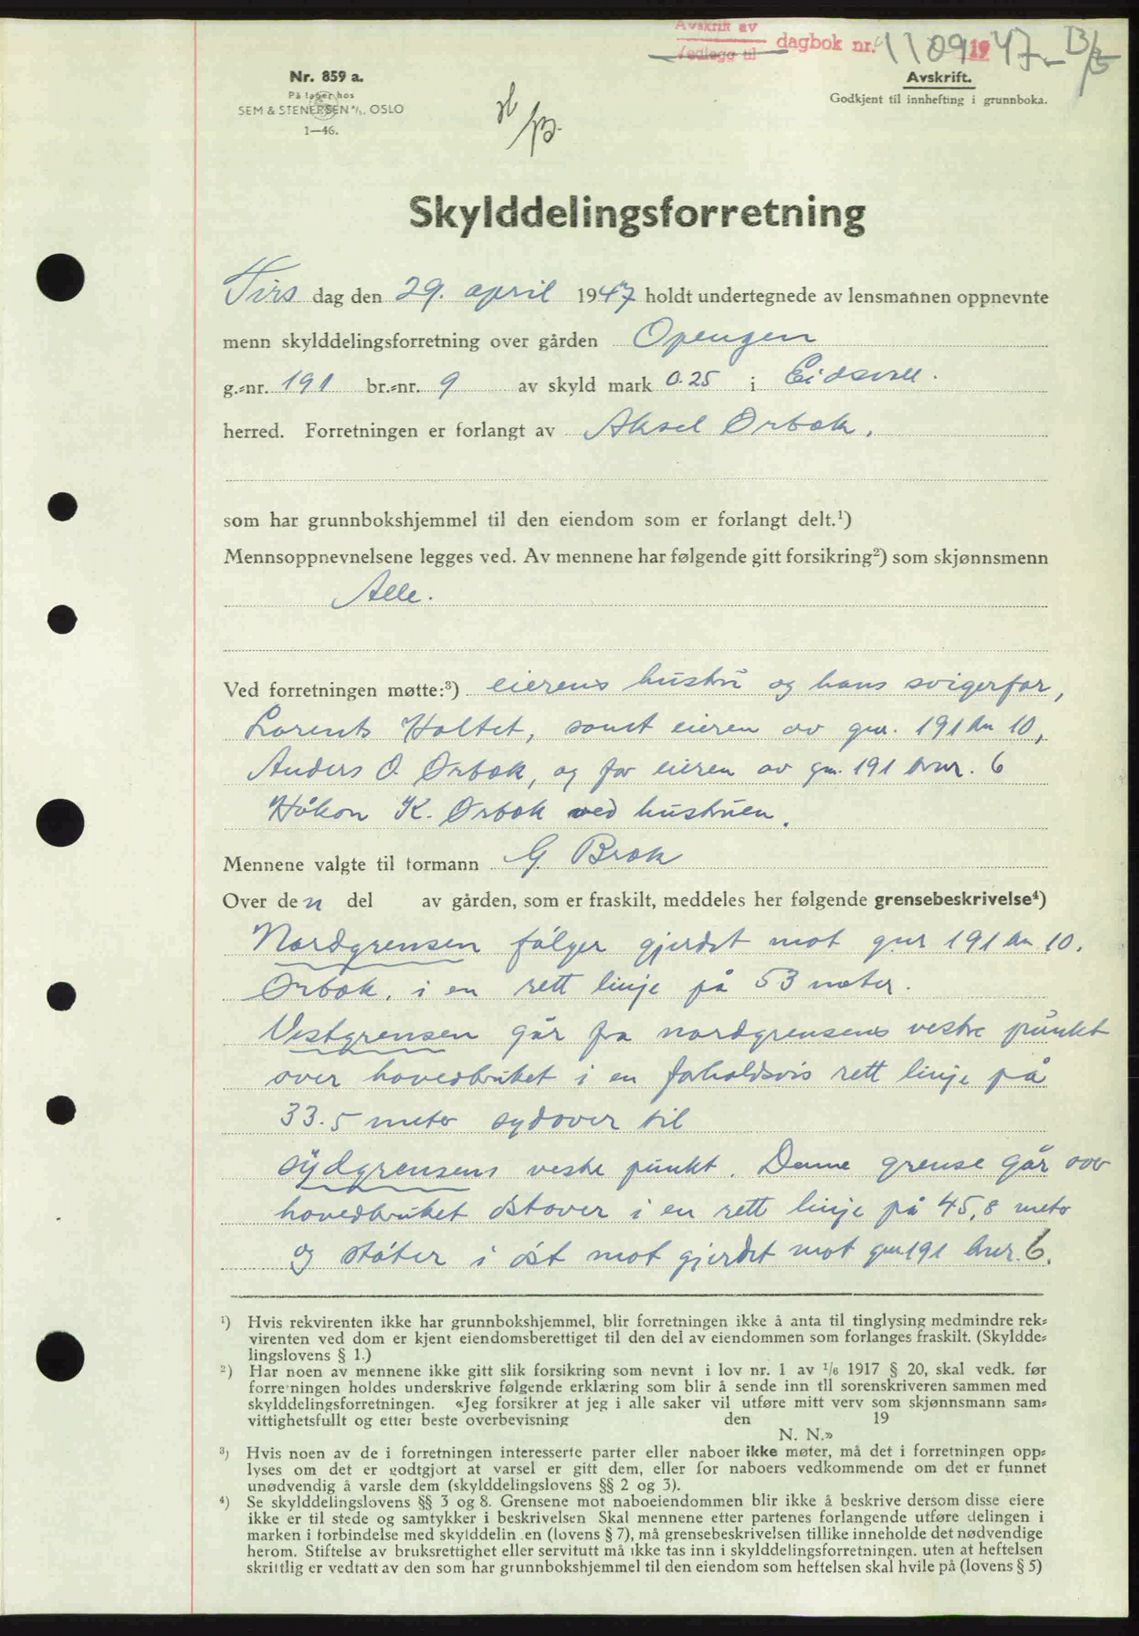 Avskrift av
Vedlegg til dagbok nr. 1109 1947
Nr. 859 a.
På lager hos
SEM & STENERSEN A/S. OSLO
1—46.
Avskrift.
Godkjent til innhefting i grunnboka.
Skylddelingsforretning
Tirs dag den 29. april 1947 holdt undertegnede av lensmannen oppnevnte
menn skylddelingsforretning over gården Opengen
g.-nr. 191 br.-nr. 9 av skyld mark 0.25 i Eidsvoll.
herred. Forretningen er forlangt av Aksel Ørbak.
som har grunnbokshjemmel til den eiendom som er forlangt delt.¹)
Mennsoppnevnelsene legges ved. Av mennene har følgende gitt forsikring²) som skjønnsmenn
Alle.
Ved forretningen møtte:³) eierens hustru og hans svigerfar,
Lorents Holtet, samt eieren av gnr. 191 bn 10,
Anders O. Ørbak, og for eieren av gn. 191 bnr. 6
Håkon K. Ørbak ved hustruen.
Mennene valgte til formann G. Brok
Over den del av gården, som er fraskilt, meddeles her følgende grensebeskrivelse⁴)
Nordgrensen følger gjerdet mot gnr 191 bn 10.
Ørbak, i en rett linje på 53 meter.
Vestgrensen går fra nordgrensens vestre punkt
over hovedbruket i en forholdsvis rett linje på
33.5 meter sydover til
sydgrensens vestre punkt. Denne grense går over
hovedbruket østover i en rett linje på 45,8 meter
og støter i øst mot gjerdet mot gnr 191 bnr. 6.
¹) Hvis rekvirenten ikke har grunnbokshjemmel, blir forretningen ikke å anta til tinglysing medmindre rek-
virenten ved dom er kjent eiendomsberettiget til den del av eiendommen som forlanges fraskilt. (Skyldde-
lingslovens § 1.)
²) Har noen av mennene ikke gitt slik forsikring som nevnt i lov nr. 1 av 1/6 1917 § 20, skal vedk. før
forretningen holdes underskrive følgende erklæring som blir å sende inn til sorenskriveren sammen med
skylddelingsforretningen. «Jeg forsikrer at jeg i alle saker vil utføre mitt verv som skjønnsmann sam-
vittighetsfullt og etter beste overbevisning den 19
N. N.»
³) Hvis noen av de i forretningen interesserte parter eller naboer ikke møter, må det i forretningen opp-
lyses om det er godtgjort at varsel er gitt dem, eller for naboers vedkommende om det er funnet
unødvendig å varsle dem (skylddelingslovens §§ 2 og 3).
⁴) Se skylddelingslovens §§ 3 og 8. Grensene mot naboeiendommen blir ikke å beskrive dersom disse eiere
ikke er til stede og samtykker i beskrivelsen Skal mennene etter partenes forlangende utføre delingen i
marken i forbindelse med skylddelin en (lovens § 7), må grensebeskrivelsen tillike inneholde det nødvendige
herom. Stiftelse av bruksrettighet eller servitutt må ikke tas inn i skylddelingsforretningen. uten at heftelsen
skriftlig er vedtatt av den som har grunnbokshjemmel til den eiendom som heftelsen skal hvile på (lovens § 5)